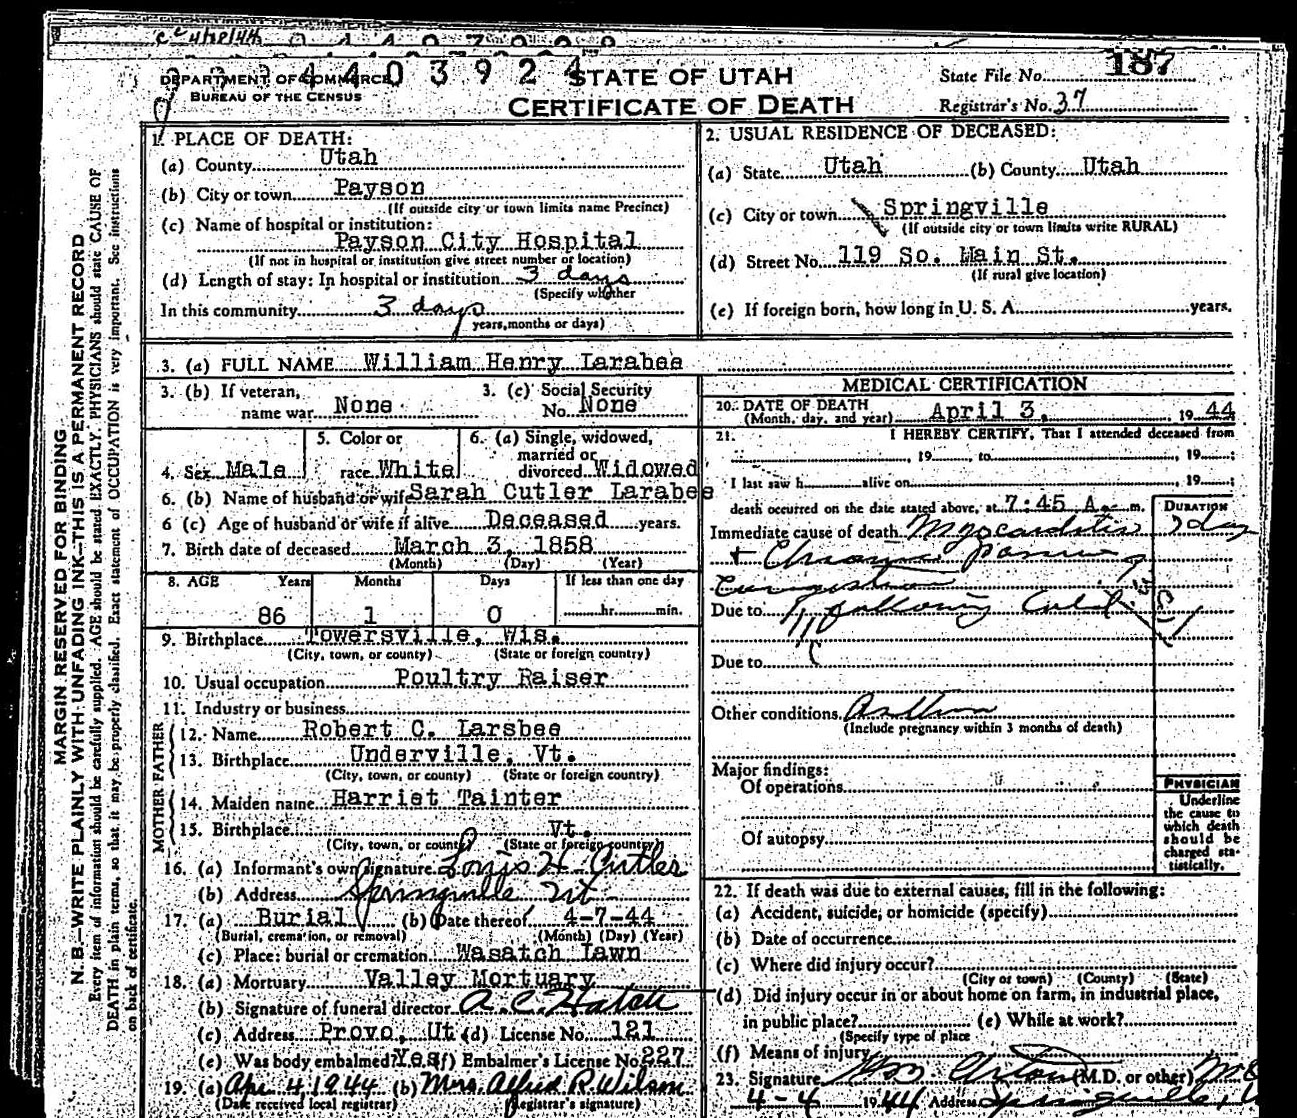 c c 4/12/44
DEPARTMENT OF COMMERCE
BUREAU OF THE CENSUS
4 4 0 3 9 2 4
STATE OF UTAH
CERTIFICATE OF DEATH
State File No. 187
Registrar's No. 37
MARGIN RESERVED FOR BINDING
N. B.—WRITE PLAINLY WITH UNFADING INK—THIS IS A PERMANENT RECORD
Every item of information should be carefully supplied. AGE should be stated EXACTLY. PHYSICIANS should state CAUSE OF
DEATH in plain terms, so that it may be properly classified. Exact statement of OCCUPATION is very important. See instructions
on back of certificate.
1. PLACE OF DEATH:
(a) County Utah
(b) City or town Payson
(If outside city or town limits name Precinct)
(c) Name of hospital or institution:
Payson City Hospital
(If not in hospital or institution give street number or location)
(d) Length of stay: In hospital or institution 3 days
(Specify whether
In this community 3 days
years, months or days)
2. USUAL RESIDENCE OF DECEASED:
(a) State Utah (b) County Utah
(c) City or town Springville
(If outside city or town limits write RURAL)
(d) Street No. 119 So. Main St.
(If rural give location)
(e) If foreign born, how long in U. S. A. years.
3. (a) FULL NAME William Henry Larabee
3. (b) If veteran, name war None
3. (c) Social Security No. None
4. Sex Male
5. Color or race White
6. (a) Single, widowed, married or divorced Widowed
6. (b) Name of husband or wife Sarah Cutler Larabee
6 (c) Age of husband or wife if alive Deceased years.
7. Birth date of deceased March 3, 1858
(Month) (Day) (Year)
8. AGE Years Months Days If less than one day
86 1 0 hr. min.
9. Birthplace Towersville, Wis.
(City, town, or county) (State or foreign country)
10. Usual occupation Poultry Raiser
11. Industry or business
MOTHER FATHER
12. Name Robert C. Larsbee
13. Birthplace Underville, Vt.
(City, town, or county) (State or foreign country)
14. Maiden name Harriet Tainter
15. Birthplace Vt.
(City, town, or county) (State or foreign country)
16. (a) Informant's own signature Loris H. Cutler
(b) Address Springville Ut
17. (a) Burial (b) Date thereof 4-7-44
(Burial, cremation, or removal) (Month) (Day) (Year)
(c) Place: burial or cremation Wasatch Lawn
18. (a) Mortuary Valley Mortuary
(b) Signature of funeral director A. C. Hatch
(c) Address Provo, Ut (d) License No. 121
(e) Was body embalmed? Yes (f) Embalmer's License No. 227
19. (a) Apr 4, 1944 (b) Mrs. Alfred R. Wilson
(Date received local registrar) (Registrar's signature)
MEDICAL CERTIFICATION
20. DATE OF DEATH
(Month, day, and year) April 3, 19 44
21. I HEREBY CERTIFY, That I attended deceased from
, 19 , to , 19 ;
I last saw h alive on , 19 ;
death occurred on the date stated above, at 7:45 A. m.
DURATION
Immediate cause of death Myocarditis day
+ Chronic passive
Congestion
Due to following Cold
Due to
Other conditions Asthma
(Include pregnancy within 3 months of death)
Major findings:
Of operations
Of autopsy
PHYSICIAN
Underline
the cause to
which death
should be
charged sta-
tistically.
22. If death was due to external causes, fill in the following:
(a) Accident, suicide, or homicide (specify)
(b) Date of occurrence
(c) Where did injury occur?
(City or town) (County) (State)
(d) Did injury occur in or about home on farm, in industrial place,
in public place? (e) While at work?
(Specify type of place
(f) Means of injury
23. Signature (M.D. or other) M.D
4-4 19 44 Address Springville, U